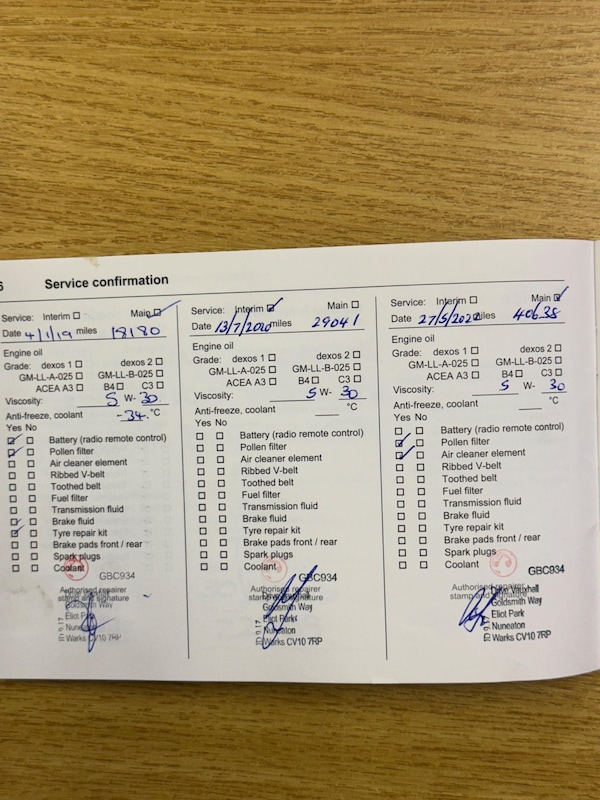 6 Service confirmation
Service: Interim ☐ Main ☑
Date 4/1/19 miles 18180
Engine oil
Grade: dexos 1 ☐ dexos 2 ☐
GM-LL-A-025 ☐ GM-LL-B-025 ☐
ACEA A3 ☐ B4 ☐ C3 ☐
Viscosity: 5 W- 30
Anti-freeze, coolant -34 °C
Yes No
☑ ☐ Battery (radio remote control)
☑ ☐ Pollen filter
☐ ☐ Air cleaner element
☐ ☐ Ribbed V-belt
☐ ☐ Toothed belt
☐ ☐ Fuel filter
☐ ☐ Transmission fluid
☑ ☐ Brake fluid
☑ ☐ Tyre repair kit
☐ ☐ Brake pads front / rear
☐ ☐ Spark plugs
☐ ☐ Coolant
GBC934
Authorised repairer
stamp and signature
Goldsmith Way
Eliot Park
Nuneaton
Warks CV10 7RP
Service: Interim ☑ Main ☐
Date 13/7/2020 miles 29041
Engine oil
Grade: dexos 1 ☐ dexos 2 ☐
GM-LL-A-025 ☐ GM-LL-B-025 ☐
ACEA A3 ☐ B4 ☐ C3 ☐
Viscosity: 5 W- 30
Anti-freeze, coolant °C
Yes No
☐ ☐ Battery (radio remote control)
☐ ☐ Pollen filter
☐ ☐ Air cleaner element
☐ ☐ Ribbed V-belt
☐ ☐ Toothed belt
☐ ☐ Fuel filter
☐ ☐ Transmission fluid
☐ ☐ Brake fluid
☐ ☐ Tyre repair kit
☐ ☐ Brake pads front / rear
☐ ☐ Spark plugs
☐ ☐ Coolant
GBC934
Authorised repairer
stamp and signature
Goldsmith Way
Eliot Park
Nuneaton
Warks CV10 7RP
Service: Interim ☐ Main ☑
Date 27/5/2022 miles 40638
Engine oil
Grade: dexos 1 ☐ dexos 2 ☐
GM-LL-A-025 ☐ GM-LL-B-025 ☐
ACEA A3 ☐ B4 ☐ C3 ☐
Viscosity: 5 W- 30
Anti-freeze, coolant °C
Yes No
☐ ☐ Battery (radio remote control)
☑ ☐ Pollen filter
☑ ☐ Air cleaner element
☐ ☐ Ribbed V-belt
☐ ☐ Toothed belt
☐ ☐ Fuel filter
☐ ☐ Transmission fluid
☐ ☐ Brake fluid
☐ ☐ Tyre repair kit
☐ ☐ Brake pads front / rear
☐ ☐ Spark plugs
☐ ☐ Coolant
GBC934
Authorised repairer
stamp and signature
Vauxhall
Goldsmith Way
Eliot Park
Nuneaton
Warks CV10 7RP